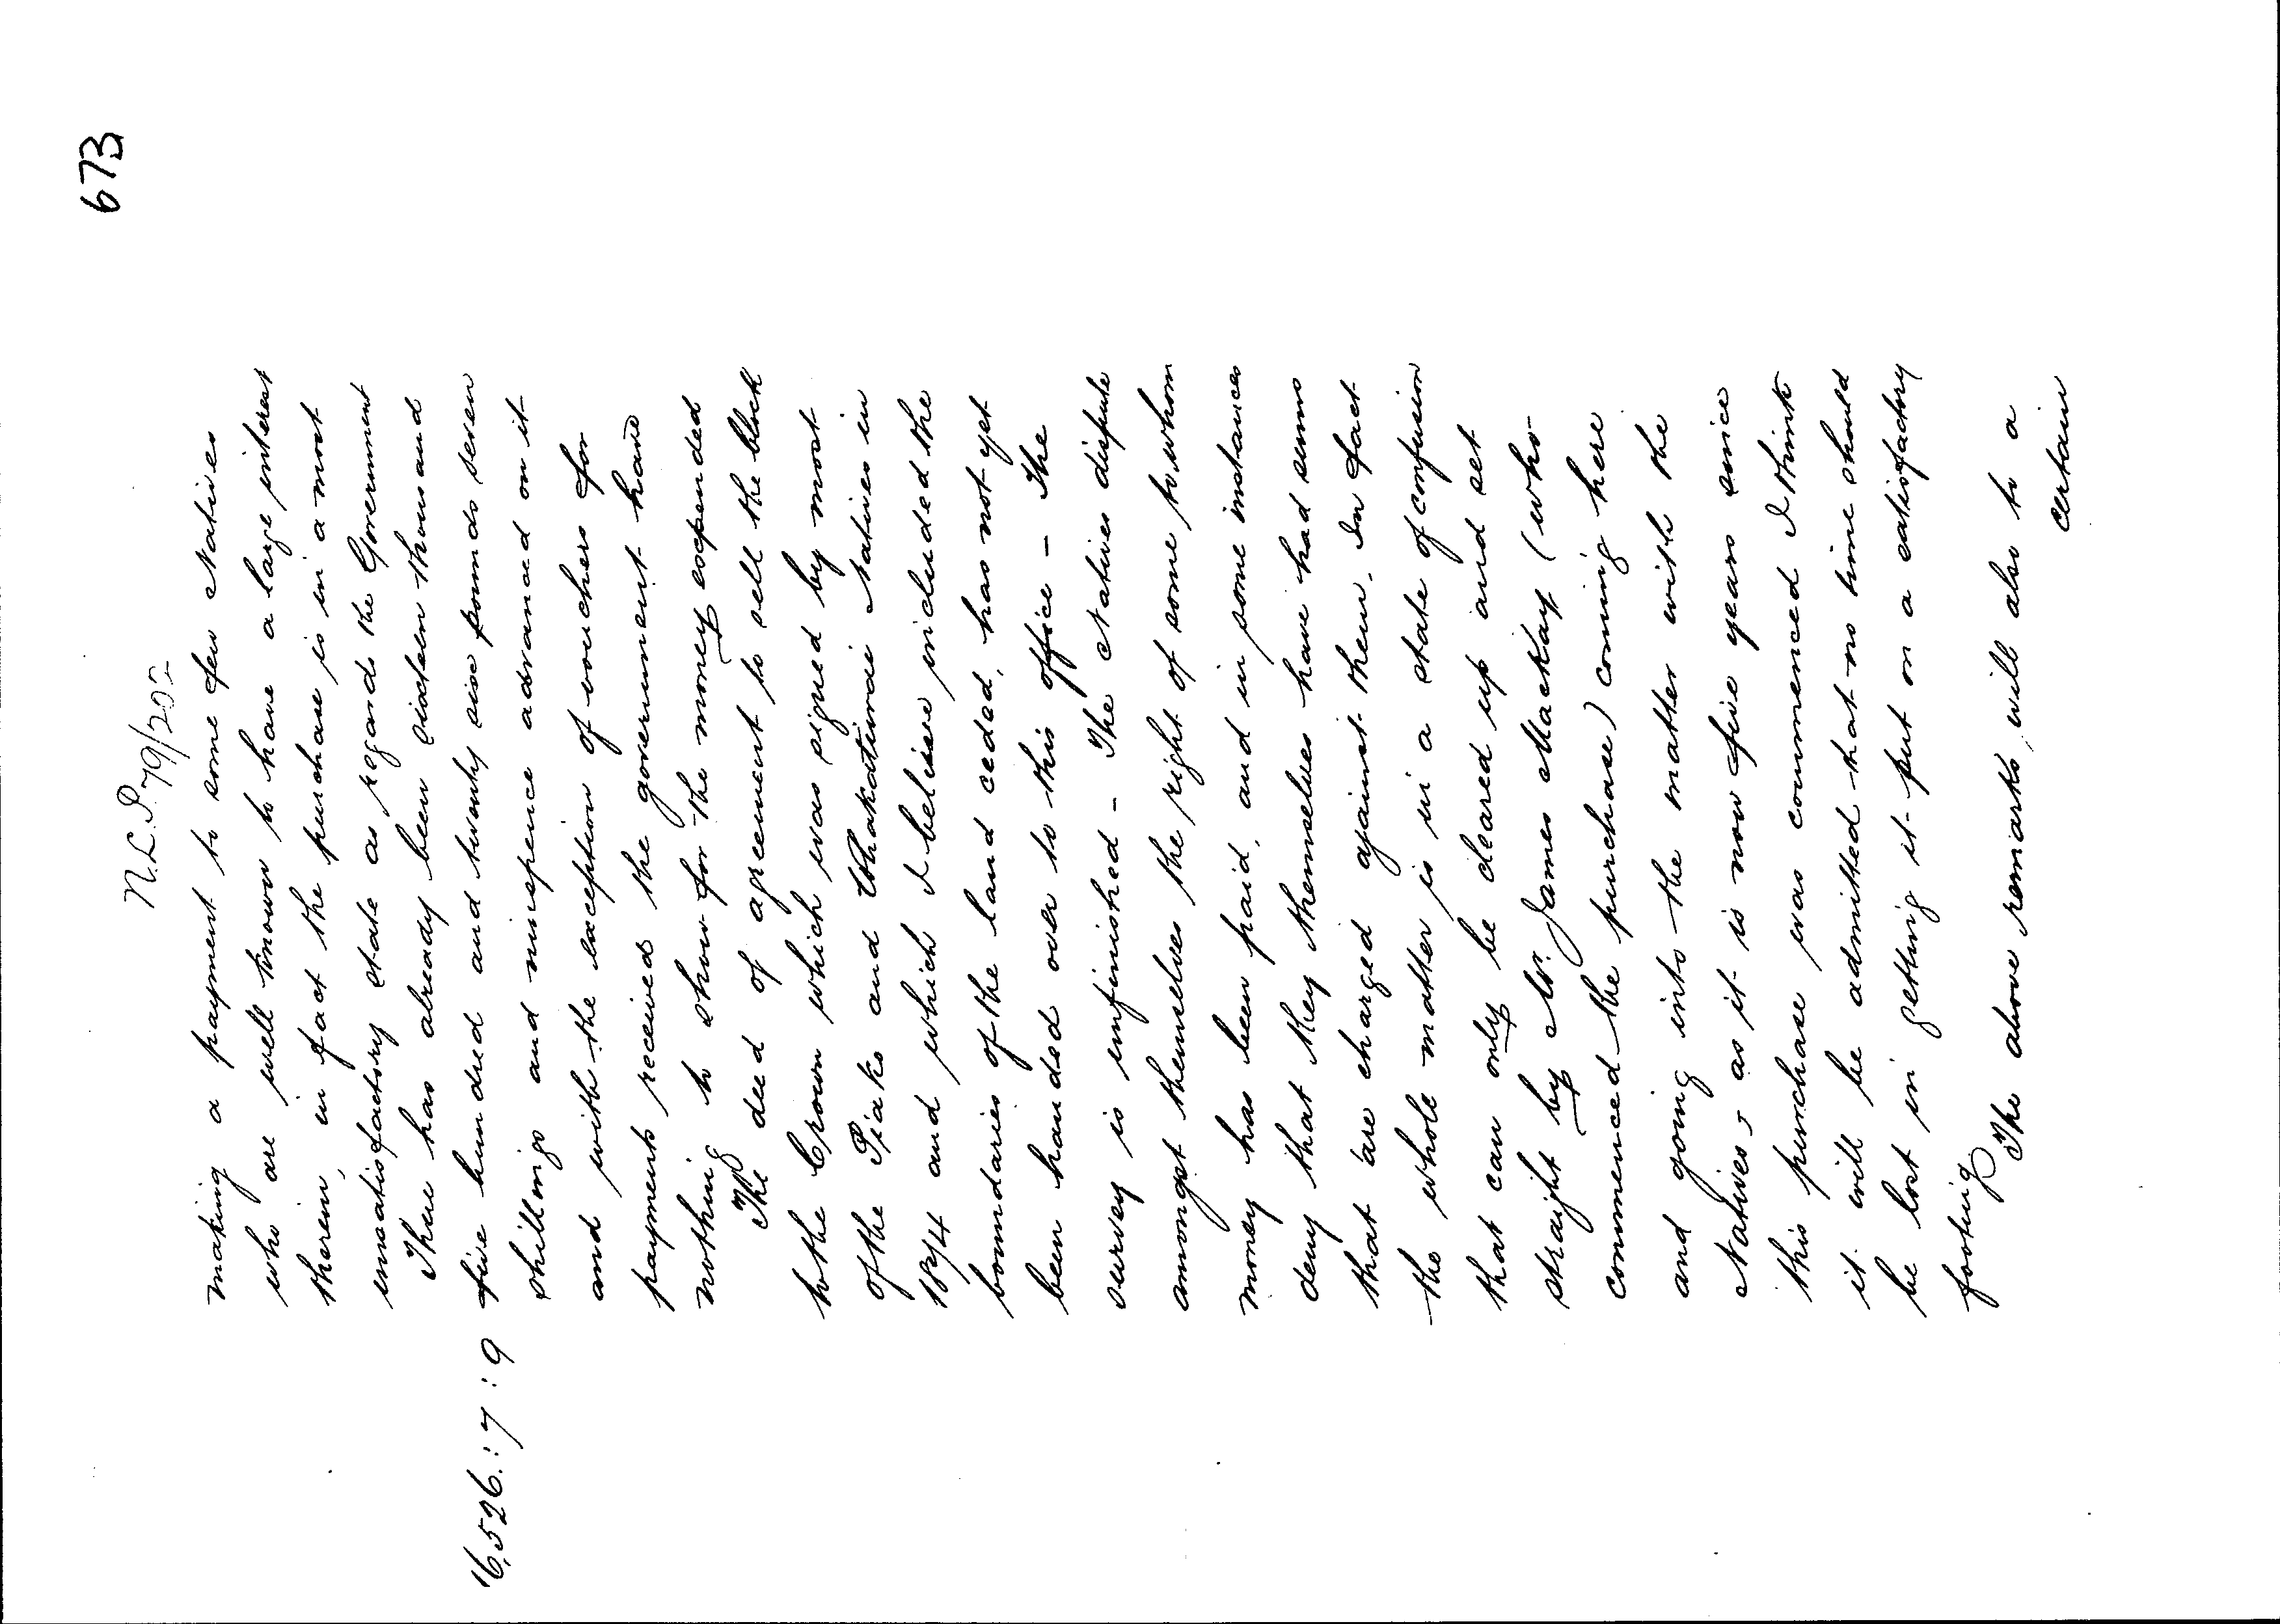 673
N.L.P. 79/202
making a payment to some few Natives
who are well known to have a large interest
therein, in fact the purchase is in a most
unsatisfactory state as regards the Government
There has already been sixteen thousand
16,526 : 7 : 9 five hundred and twenty six pounds seven
shillings and ninepence advanced on it
and with the exception of vouchers for
payments received the government have
nothing to show for the money expended
The deed of agreement to sell the block
to the Crown which was signed by most
of the Piako and Whakatiwai Natives in
1874 and which I believe included the
boundaries of the land ceded, has not yet
been handed over to this office - The
survey is unfinished - The Natives dispute
amongst themselves the right of some to whom
money has been paid, and in some instances
deny that they themselves have had sums
that are charged against them. In fact
the whole matter is in a state of confusion
that can only be cleared up and set
straight by Mr. James Mackay (who
commenced the purchase) coming here
and going into the matter with the
Natives, as it is now five years since
this purchase was commenced I think
it will be admitted that no time should
be lost in getting it put on a satisfactory
footing
The above remarks, will also to a
certain